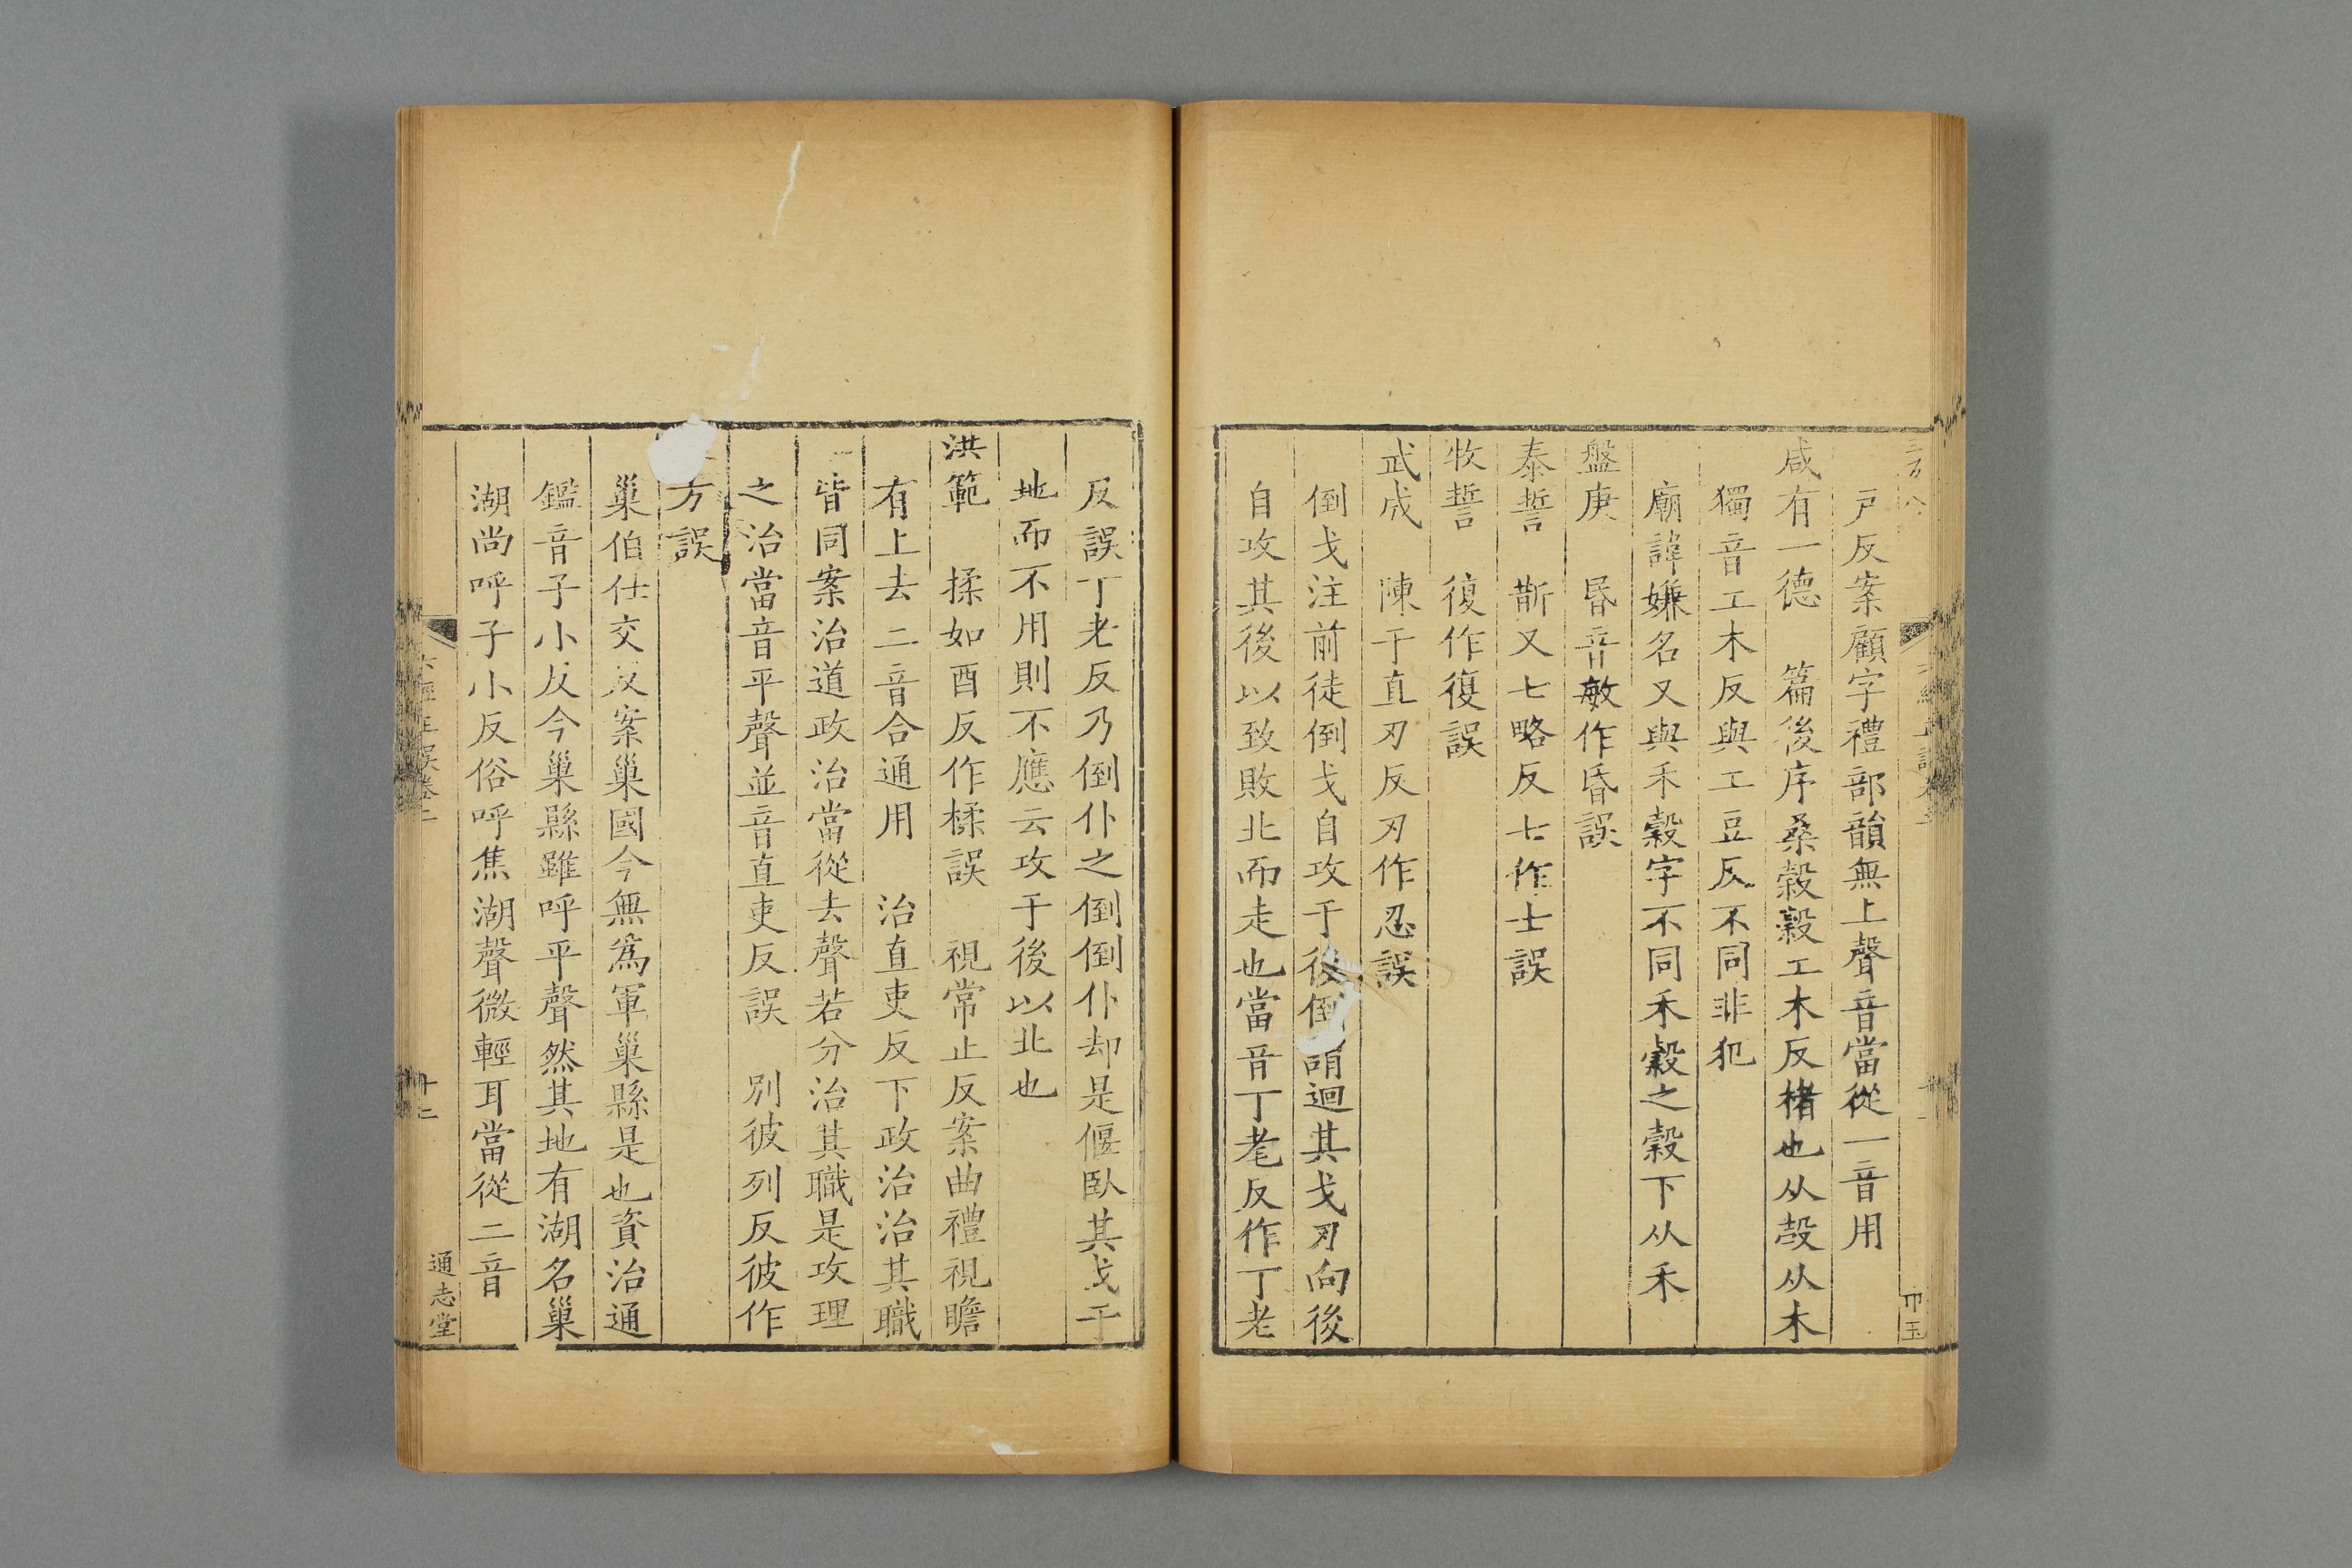 戸反案顧字禮部韻無上聲音當從一音用
咸有一德　篇後序桑榖榖工木反楮也从㱿从木
獨音工木反與工豆反不同非犯
廟諱嫌名又與禾穀字不同禾穀之穀下从禾
盤庚　昬音敏作昏誤
泰誓　斮又七略反七作士誤
牧誓　復作復誤
武成　陳于直刃反刃作忍誤
倒戈注前徒倒戈自攻于後倒謂迴其戈刃向後
自攻其後以致敗北而走也當音丁老反作丁老
反誤丁老反乃倒仆之倒倒仆却是偃臥其戈于
地而不用則不應云攻于後以北也
洪範　揉如酉反作楺誤　視常止反案曲禮視瞻
有上去二音合通用　治直吏反下政治治其職
皆同案治道政治當從去聲若分治其職是攻理
之治當音平聲並音直吏反誤　別彼列反彼作
方誤
巢伯仕交反案巢國今無爲軍巢縣是也資治通
鑑音子小反今巢縣雖呼平聲然其地有湖名巢
湖尚呼子小反俗呼焦湖聲微輕耳當從二音
六經正誤卷二
十二
通志堂